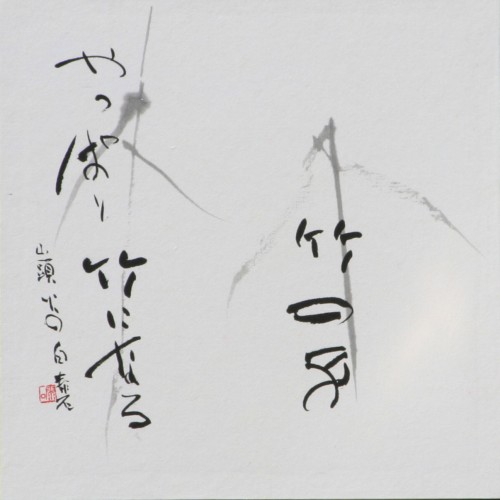 竹の子
やっぱり竹になる
山頭火の句